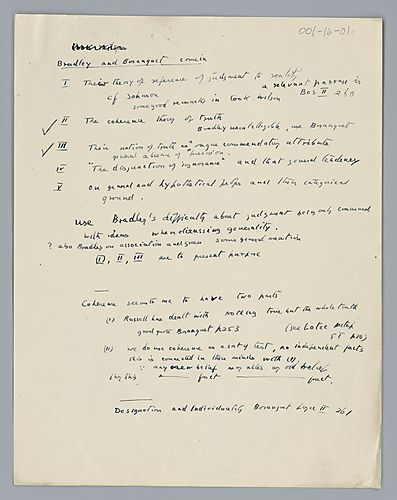 001-16-01
Bradley and Bosanquet come in
I Their theory of reference of judgment to reality
a relevant passage is
Cf Johnson Bos II 260
some good remarks in Cook Wilson
II The coherence theory of truth
Bradley unintelligible, use Bosanquet
III Their notion of truth as "vague commendatory attribute
general absence of precision.
IV "The disjunction of ignorance" and that general tendency
V On general and hypothetical props and their categorical
ground.
use Bradley's difficulty about judgment being only concerned
with ideas when discussing generality.
? also Bradley on association and some general mention
I, II, III are to present purpose
Coherence seems to me to have two parts
(i) Russell has dealt with nothing true but the whole truth
good quote Bosanquet p253 (see Lotze Metaph
(ii) we do use coherence as a sort of test, no independent facts
this is connected in their minds with (i)
∵ any new belief may alter any old belief
fact fact.
Designation and Individuality Bosanquet Logic II 261